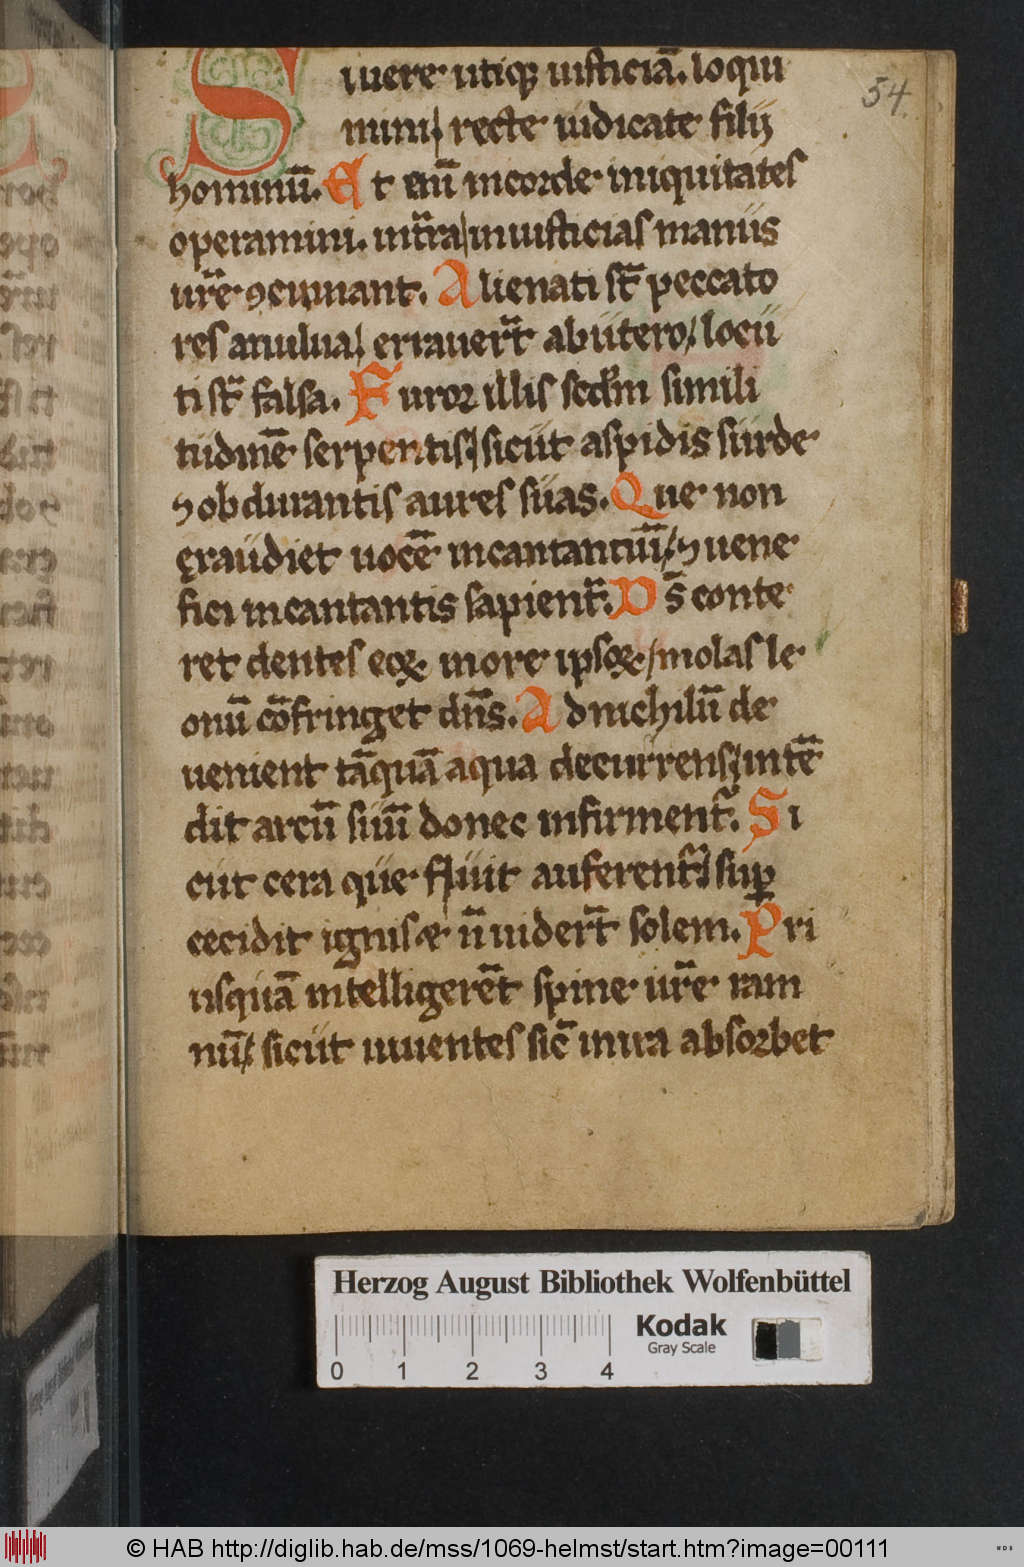 54.
S iuere utiqꝫ iusticiā. loqui
mini recte iudicate filij
hominū. Et enī in corde iniquitates
operamini. in tr̄a iniusticias manus
ur̄e ꝯcinnant. Alienati st̄ peccato
res a uulua, errauer̄t ab utero, locu
ti st̄ falsa. Furor illis scd̄m simili
tudinē serpentis, sicut aspidis surde
⁊ obdurantis aures suas. Que non
exaudiet uocē incantantiū, ⁊ uene
fici incantantis sapient̄. Ds̄ conte
ret dentes eoꝝ in ore ipsoꝝ, molas le
onū cōfringet dn̄s. Ad nichilū de
uenient tāquā aqua decurrens, intē
dit arcū suū donec infirment̄. Si
cut cera que fluit auferent̄, suꝑ
cecidit ignis ⁊ n̄ uider̄t solem. Pri
usquā intelligerēt spine ur̄e ram
nū, sicut uiuentes sic̄ in ira absorbet
Herzog August Bibliothek Wolfenbüttel
0 1 2 3 4
Kodak
Gray Scale
© HAB http://diglib.hab.de/mss/1069-helmst/start.htm?image=00111